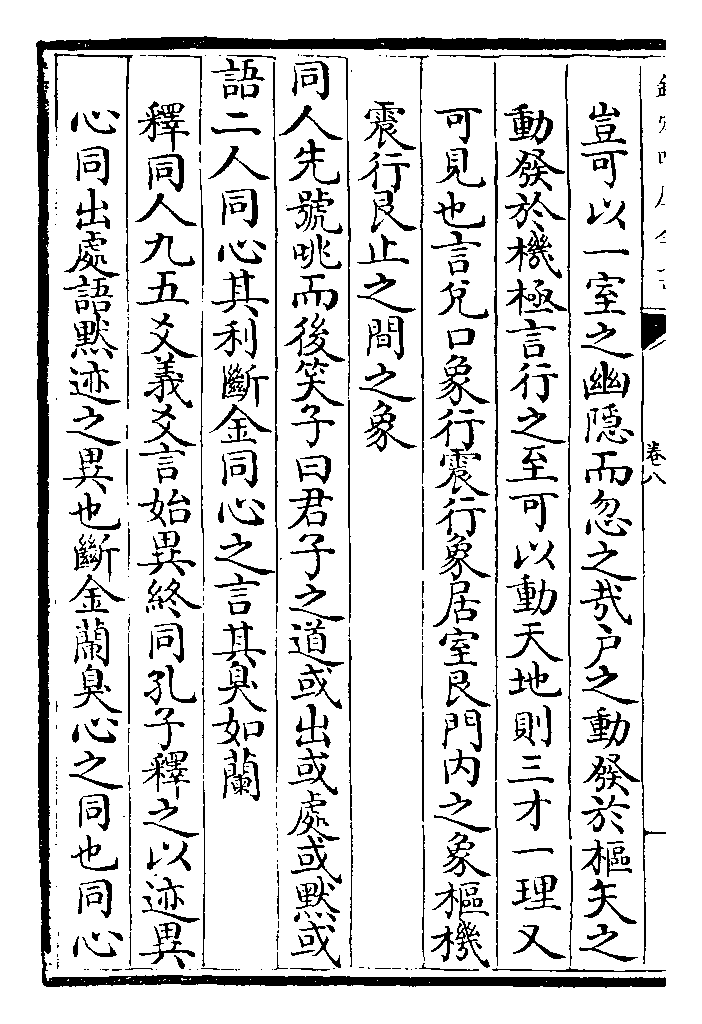 卷八
豈可以一室之幽隱而忽之㢤户之動發於樞矢之
動發於機極言行之至可以動天地則三才一理又
可見也言兌口象行震行象居室艮門内之象樞機
震行艮止之間之象
同人先號咷而後笑子曰君子之道或出或處或默或
語二人同心其利斷金同心之言其臭如蘭
釋同人九五爻義爻言始異終同孔子釋之以迹異
心同出處語默迹之異也斷金蘭臭心之同也同心